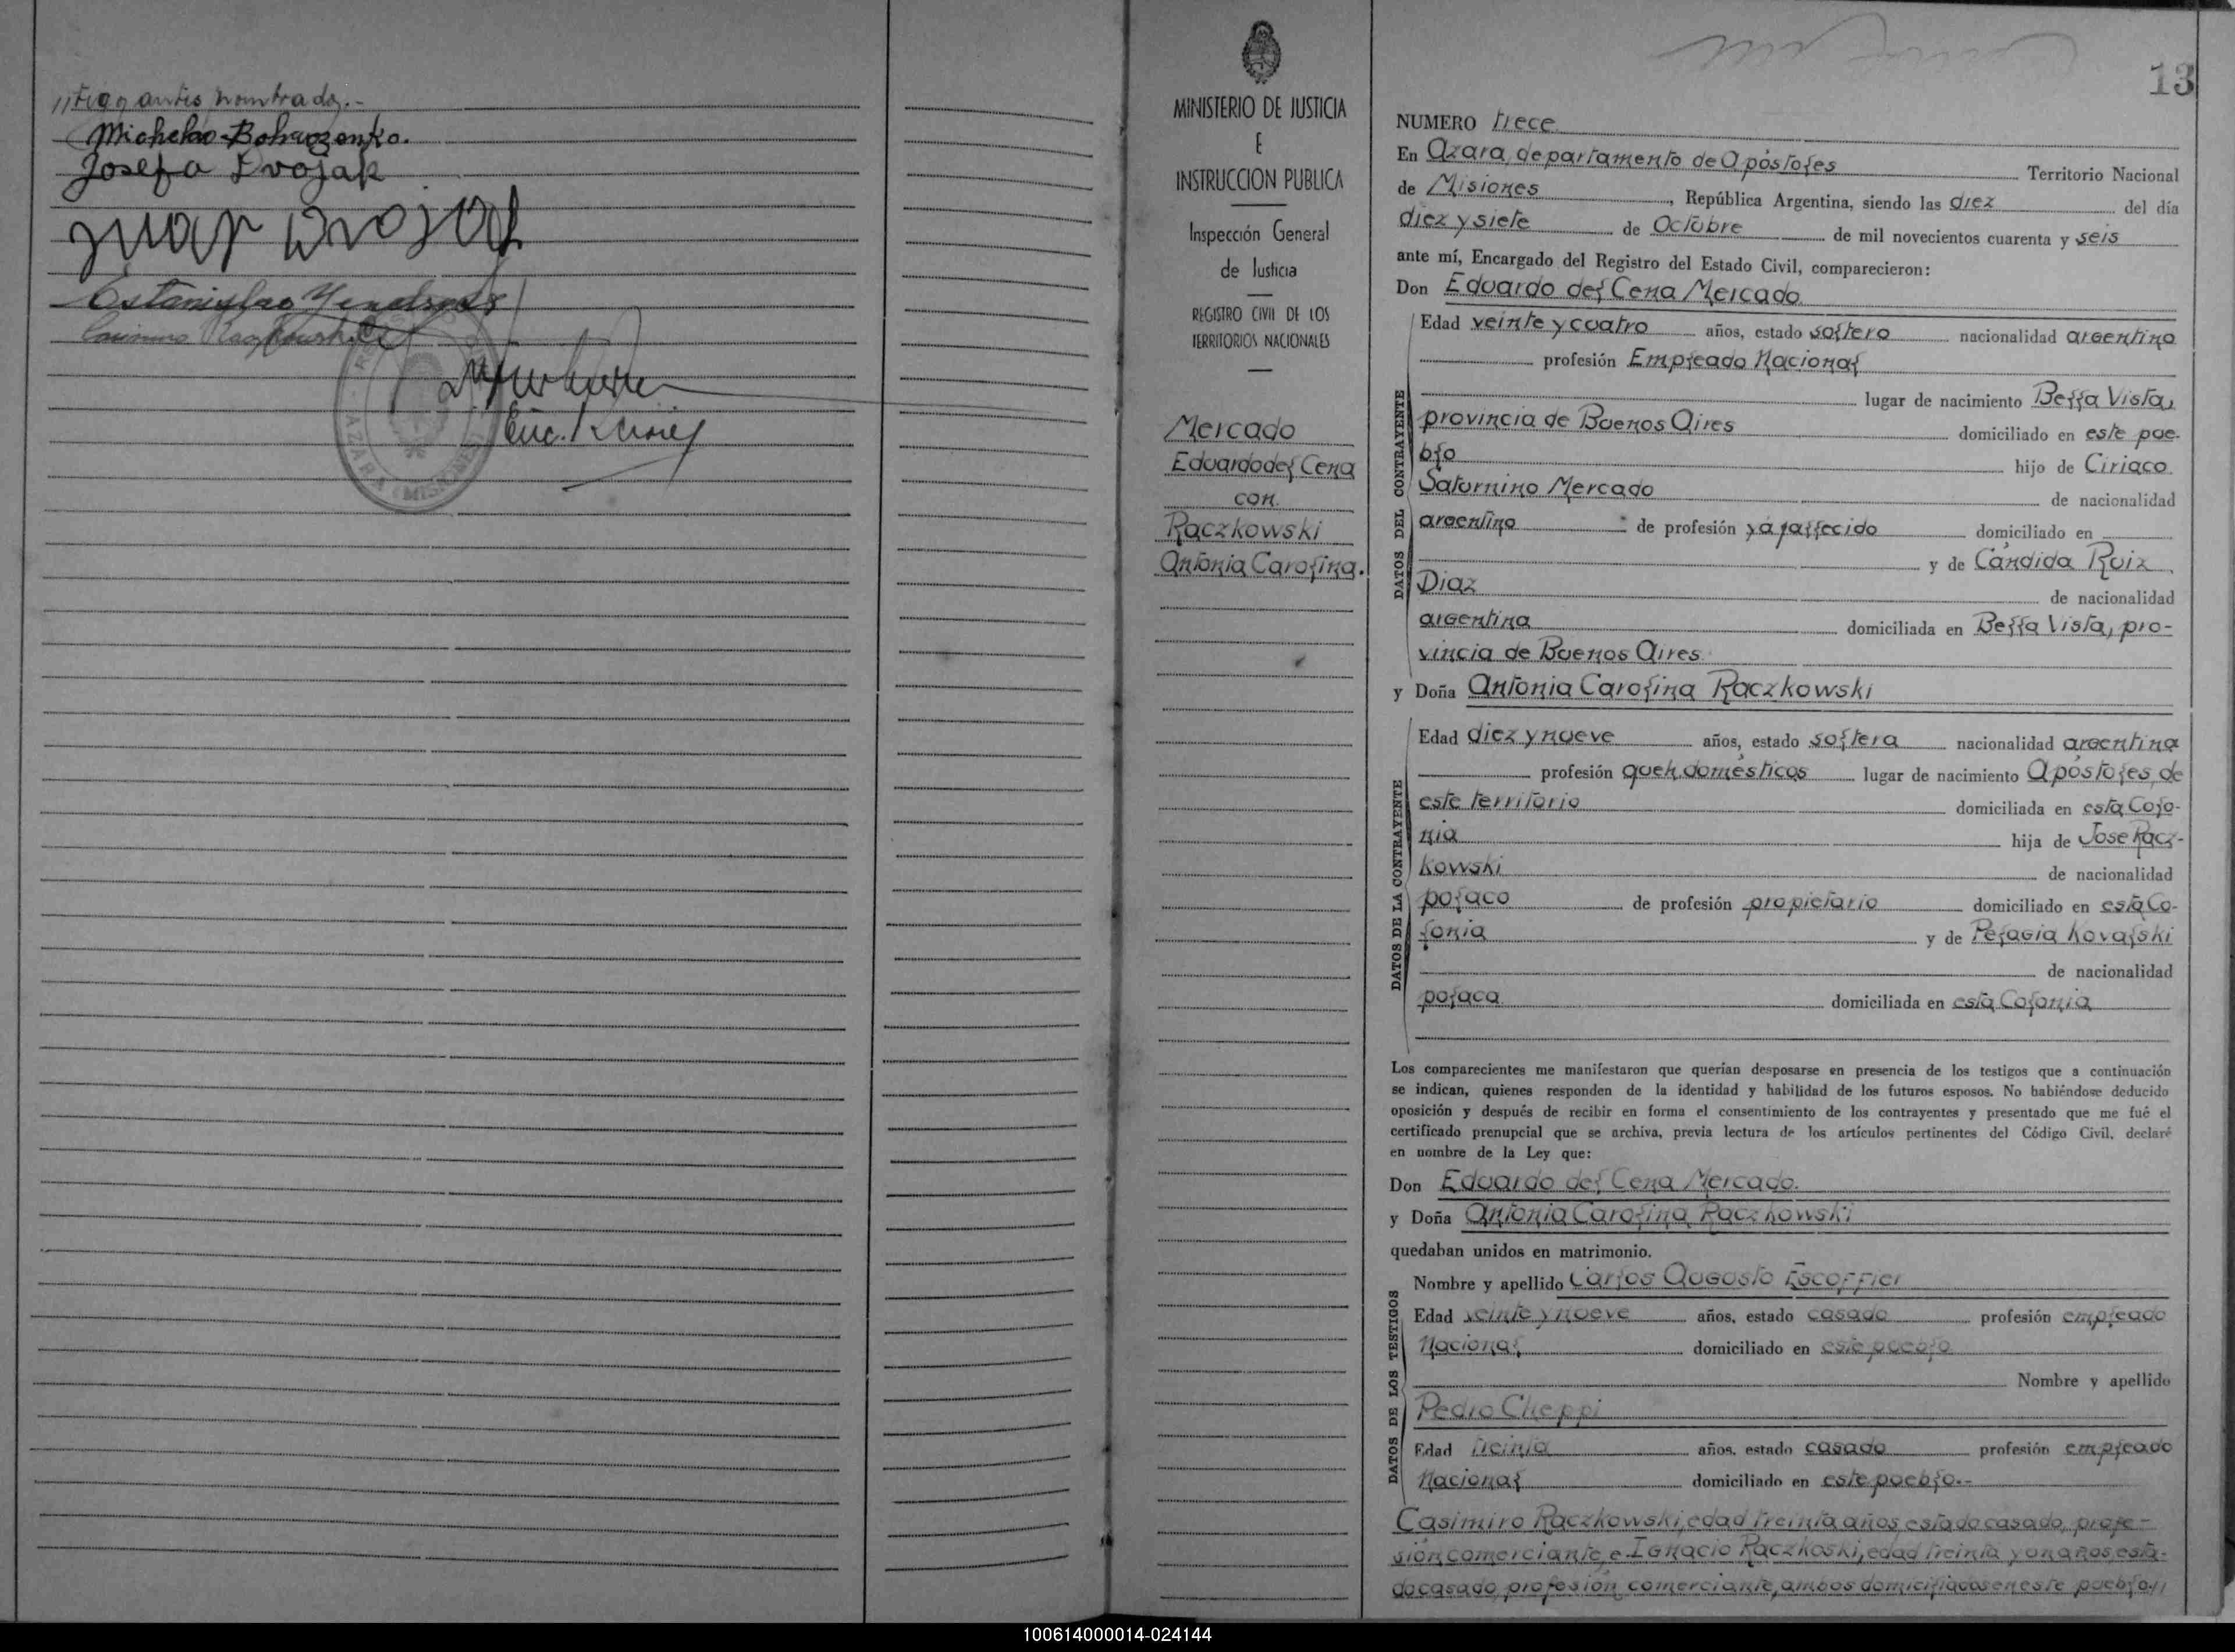 //tigo antes nombrado.-
Josefa Dvojak
Juan Dvojak
Estanislao
Casimiro Raczkowski
AZARA (MISIONES)
Enc.
MINISTERIO DE JUSTICIA
E
INSTRUCCION PUBLICA
Inspección General
de Justicia
REGISTRO CIVIL DE LOS
TERRITORIOS NACIONALES
Mercado
Eduardo del Cena
con
Raczkowski
Antonia Carolina.
13
NUMERO trece
En Azara, departamento de Apóstoles Territorio Nacional
de Misiones, República Argentina, siendo las diez del día
diez y siete de Octubre de mil novecientos cuarenta y seis
ante mí, Encargado del Registro del Estado Civil, comparecieron:
Don Eduardo del Cena Mercado
DATOS DEL CONTRAYENTE
Edad veinte y cuatro años, estado soltero nacionalidad argentino
profesión Empleado Nacional
lugar de nacimiento Bella Vista,
provincia de Buenos Aires domiciliado en este pue-
blo hijo de Ciriaco
Saturnino Mercado de nacionalidad
argentino de profesión ya fallecido domiciliado en
y de Cándida Ruiz
Diaz de nacionalidad
argentina domiciliada en Bella Vista, pro-
vincia de Buenos Aires
y Doña Antonia Carolina Raczkowski
DATOS DE LA CONTRAYENTE
Edad diez y nueve años, estado soltera nacionalidad argentina
profesión queh. domésticos lugar de nacimiento Apóstoles, de
este territorio domiciliada en esta Colo-
nia hija de Jose Racz-
kowski de nacionalidad
polaco de profesión propietario domiciliado en esta Co-
lonia y de Pelagia Kovalski
de nacionalidad
polaca domiciliada en esta Colonia
Los comparecientes me manifestaron que querían desposarse en presencia de los testigos que a continuación
se indican, quienes responden de la identidad y habilidad de los futuros esposos. No habiéndose deducido
oposición y después de recibir en forma el consentimiento de los contrayentes y presentado que me fué el
certificado prenupcial que se archiva, previa lectura de los artículos pertinentes del Código Civil, declaré
en nombre de la Ley que:
Don Eduardo del Cena Mercado.
y Doña Antonia Carolina Raczkowski
quedaban unidos en matrimonio.
DATOS DE LOS TESTIGOS
Nombre y apellido Carlos Augusto Escoffier
Edad veinte y nueve años, estado casado profesión empleado
Nacional domiciliado en este pueblo
Nombre y apellido
Pedro Cheppi
Edad treinta años, estado casado profesión empleado
Nacional domiciliado en este pueblo.-
Casimiro Raczkowski, edad treinta años, estado casado, profe-
sión comerciante, e Ignacio Raczkoski, edad treinta y un años, esta-
do casado, profesión comerciante, ambos domiciliados en este pueblo.//
100614000014-024144